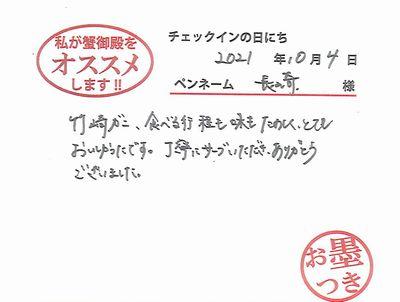 私が蟹御殿を
オススメ
します!!
チェックインの日にち
2021 年 10 月 4 日
ペンネーム 長い奇. 様
竹崎ガニ、食べる行程も味もたのしく、とても
おいしかったです。丁寧にサーブいただき、ありがとう
ございました。
お墨
つき